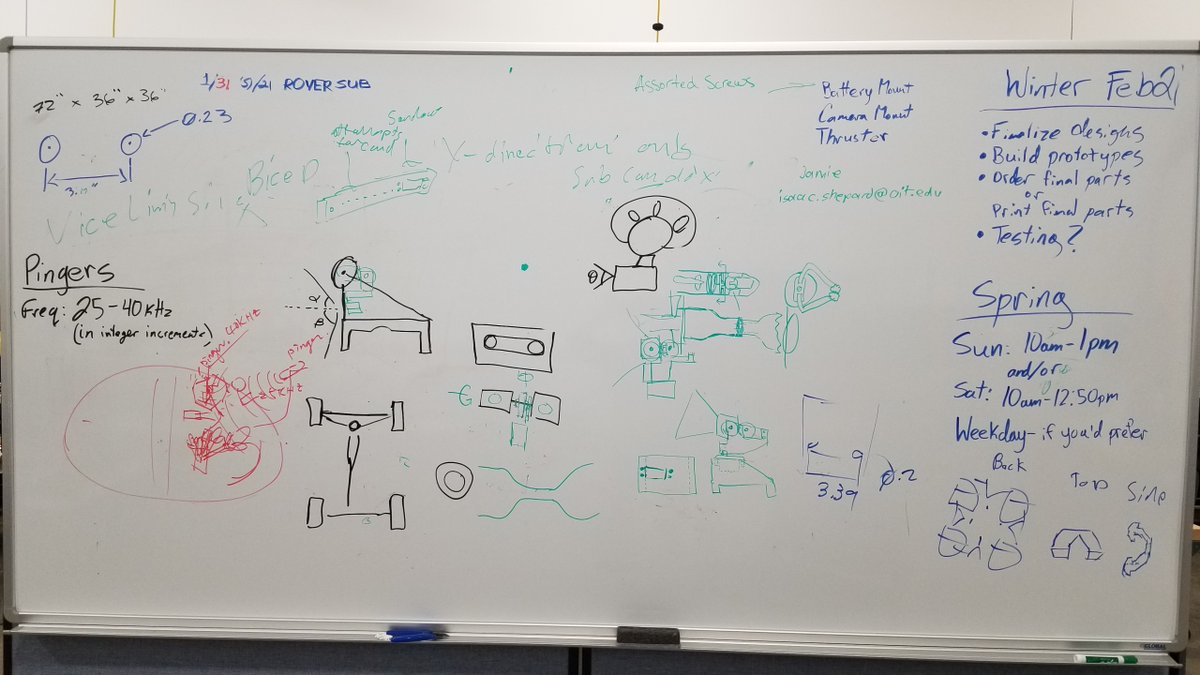 72" x 36" x 36"
ROVER SUB
0.23
Assorted Screws
Battery Mount
Camera Mount
Thruster
X-direction only
Jamie
isaac.shepard@oit.edu
Winter Feb 21
• Finalize designs
• Build prototypes
• Order final parts
or
Print final parts
• Testing?
Pingers
Freq: 25-40 kHz
(in integer increments)
pinger
40kHz
pinger
25kHz
α
β
3.39
Ø.2
Spring
Sun: 10am-1pm
and/or
Sat: 10am-12:50pm
Weekday- if you'd prefer
Back
Top
Side
GLOBAL